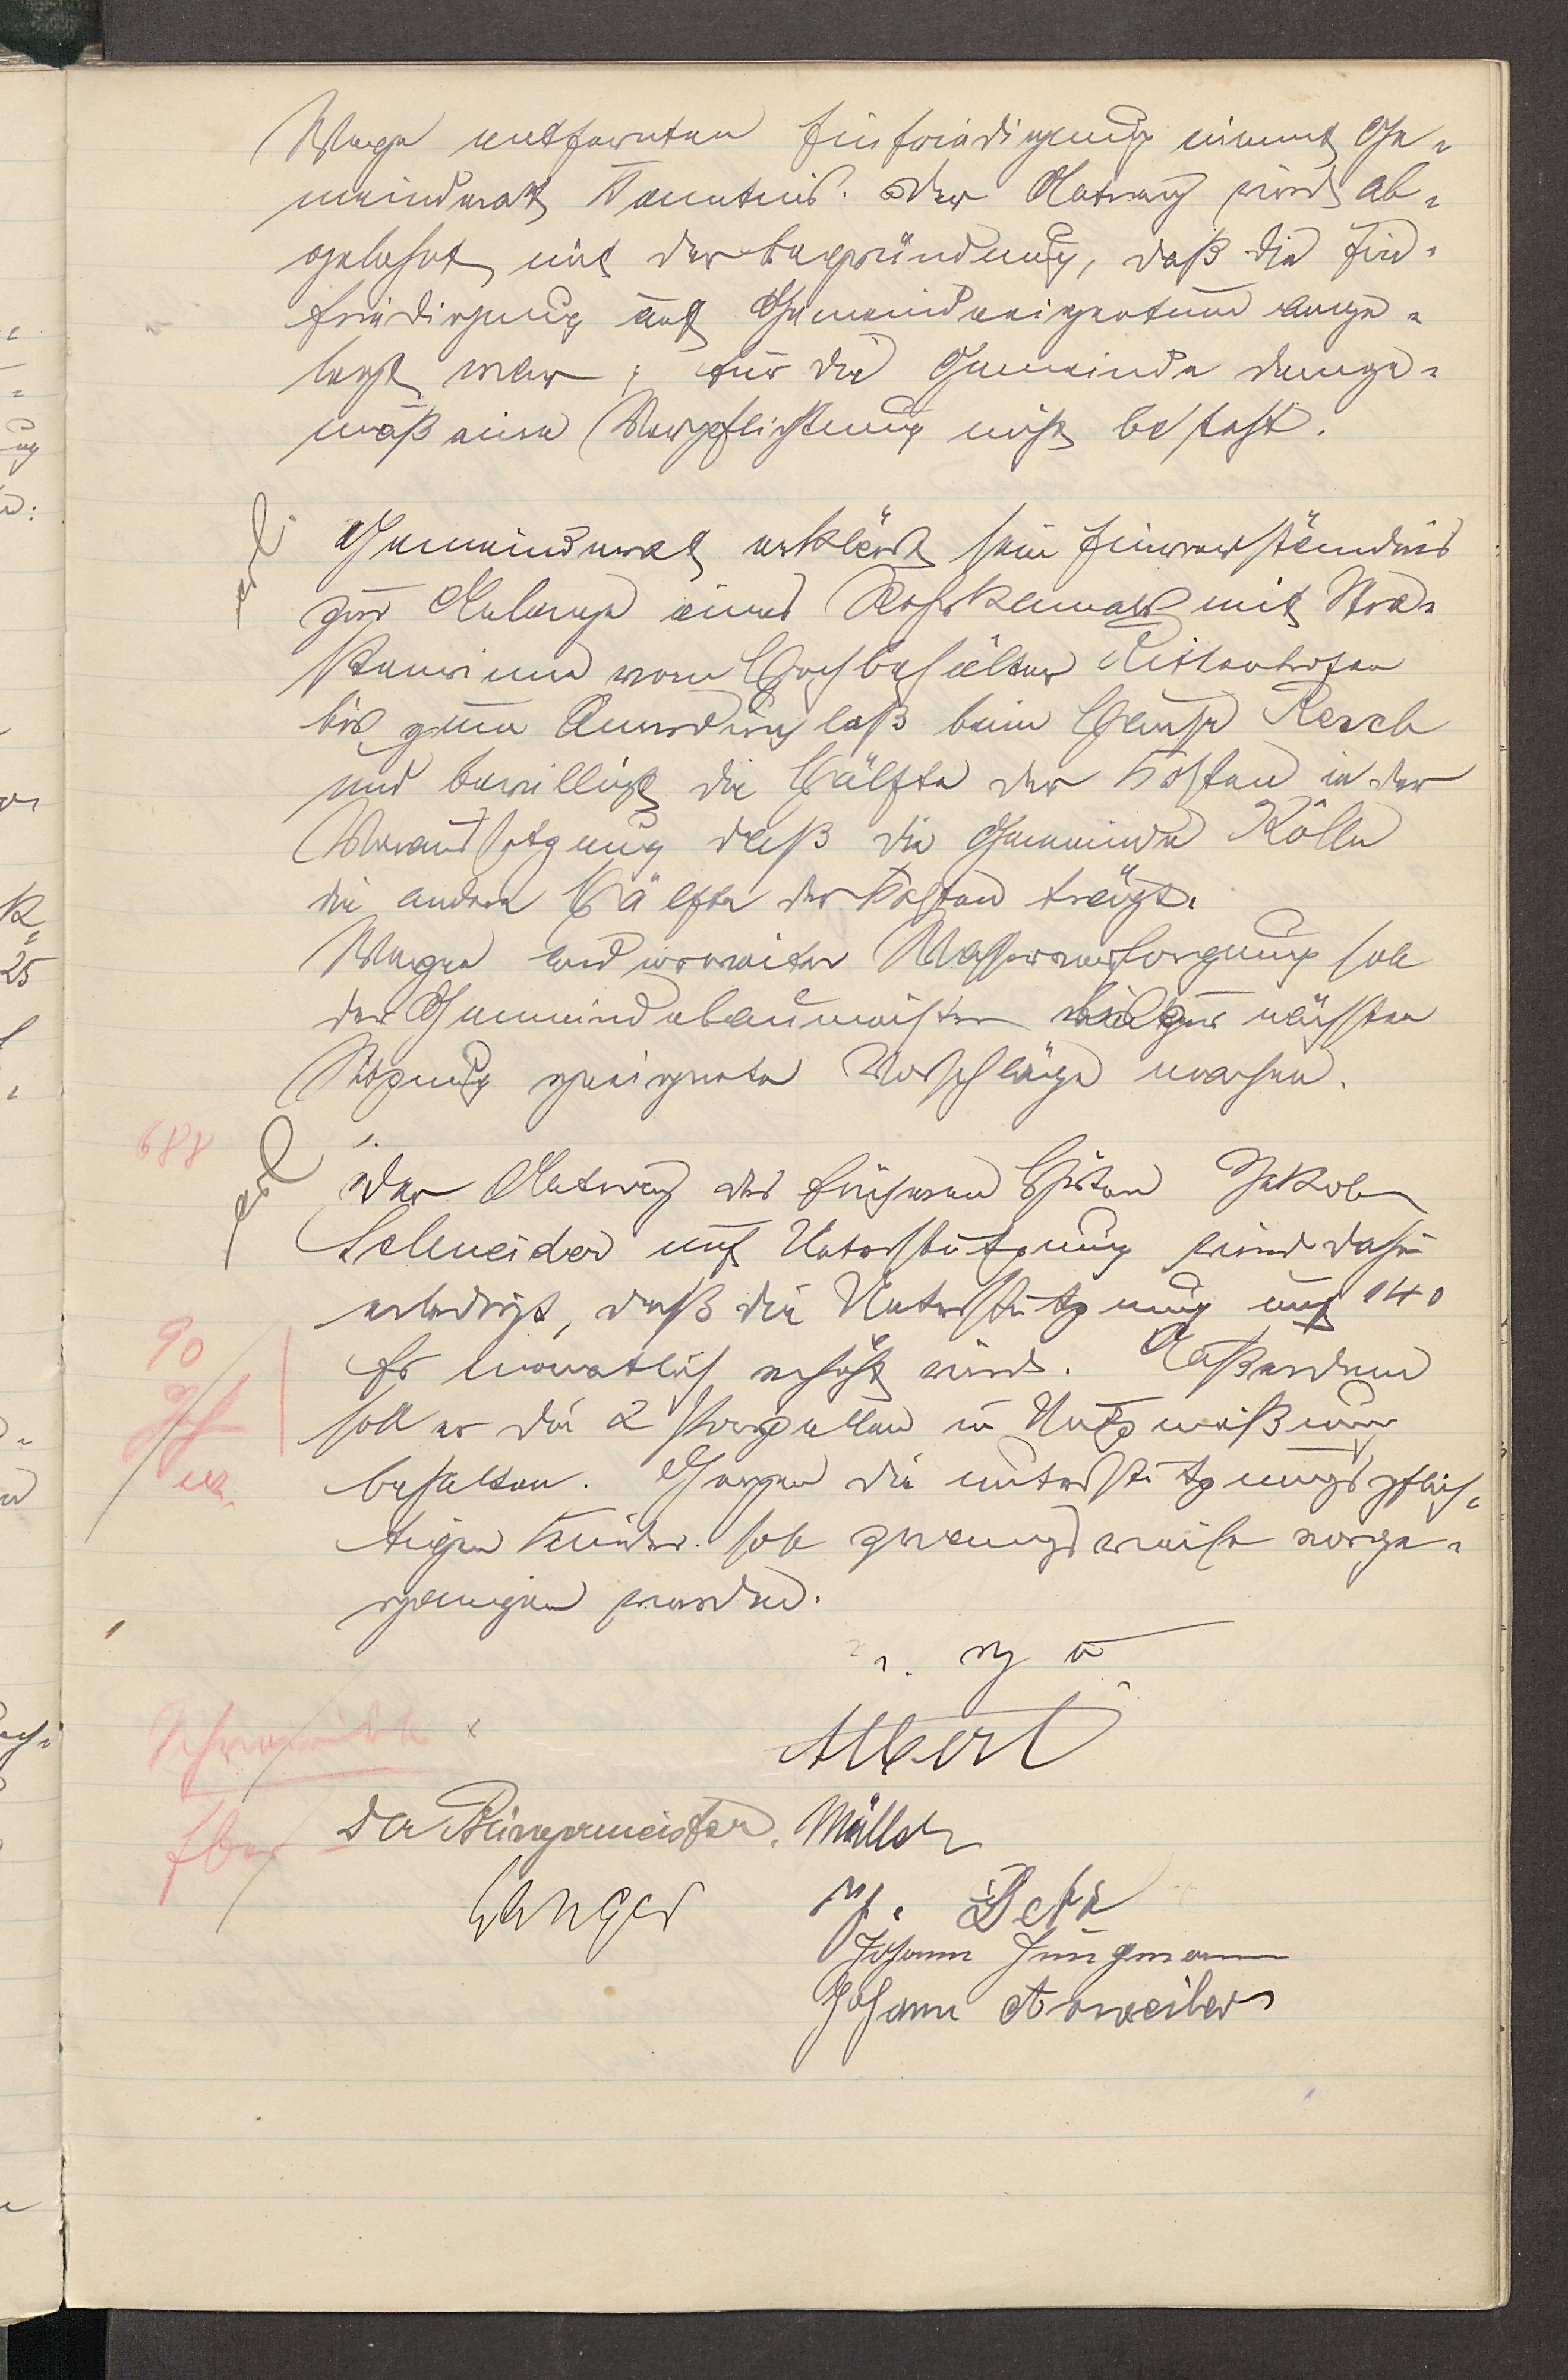 Wege entfernten Einfriedigung nimmt Ge-
meinderat Kenntnis. Der Antrag wird ab-
gelehnt mit der Begründung, daß die Ein-
friedigung auf Gemeindeeigentum ange-
legt war; für die Gemeinde demge-
mäß eine Verpflichtung nicht besteht.
erl.
Gemeinderat erklärt sein Einverständnis
zur Anlage eines Rohrkanals mit
vom Hochbehälter Rittenhofen
bis zum durchlaß beim Hause Resch
und bewilligt die Hälfte der Kosten in der
Voraussetzung daß die Gemeinde Kölln
die andere Hälfte der Kosten trägt.
Wegen anderweiter Wasserversorgung soll
der Gemeindebaumeister bis zur nächsten
Sitzung geeignete Vorschläge machen.
688
erl.
Der Antrag des früheren Hirten Jakob
Schneider auf Unterstützung wird dahin
erledigt, daß die Unterstützung auf 140
Fr monatlich erhöht wird. Außerdem
90
soll er die 2 Parzellen in Nutznießung
behalten. Gegen die unterstützungspflich-
tigen Kinder soll zwangsweise vorge-
gangen werden.
v. g. u.
Albert
Der Bürgermeister. Müller
Johann Jungmann
Johann Arweiler